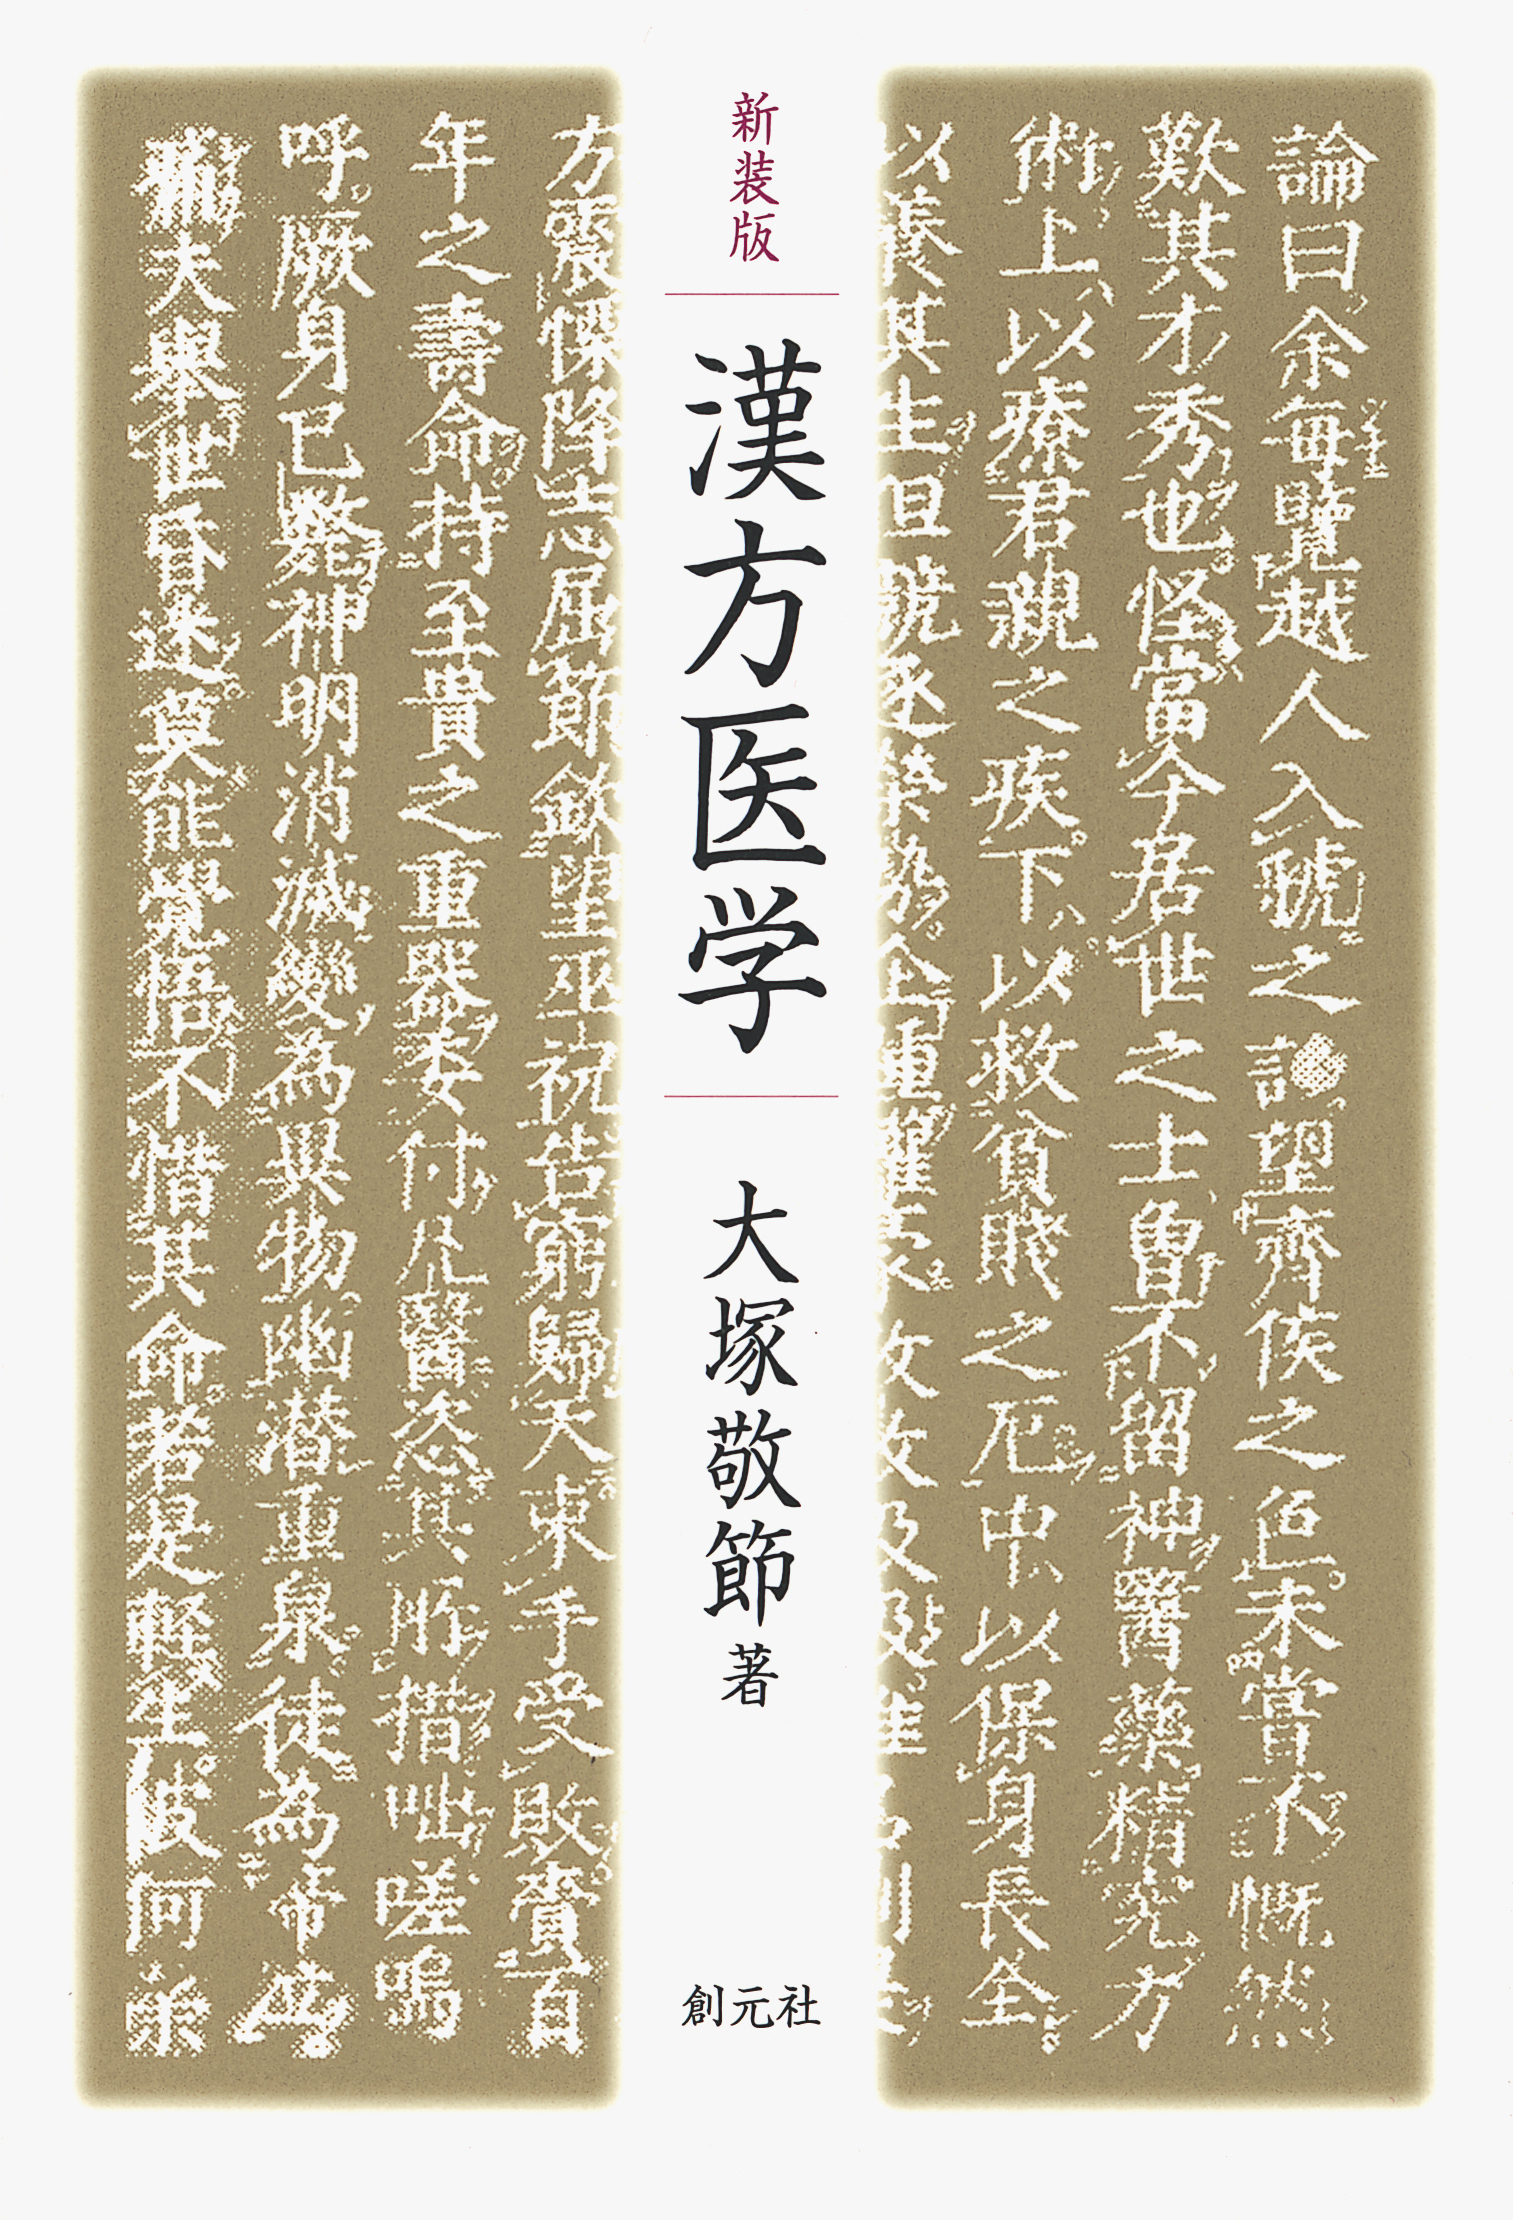 新装版
漢方医学
大塚敬節著
創元社
論曰余毎覽越人入虢之望齊侯之色未嘗不慨然
歎其才秀也怪當今居世之士曾不留神醫藥精究方
術上以療君親之疾下以救貧賤之厄中以保身長全
以養其生但競逐榮勢企踵權豪孜孜汲汲惟名利是
方震慄降志屈節欽望巫祝告窮歸天束手受敗賚百
年之壽命持至貴之重器委付凡醫恣其所措咄嗟嗚
呼厥身已斃神明消滅變為異物幽潜重泉徒為啼泣
痛夫舉世昏迷莫能覺悟不惜其命若是輕生彼何榮